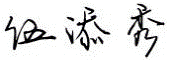 伍添秀